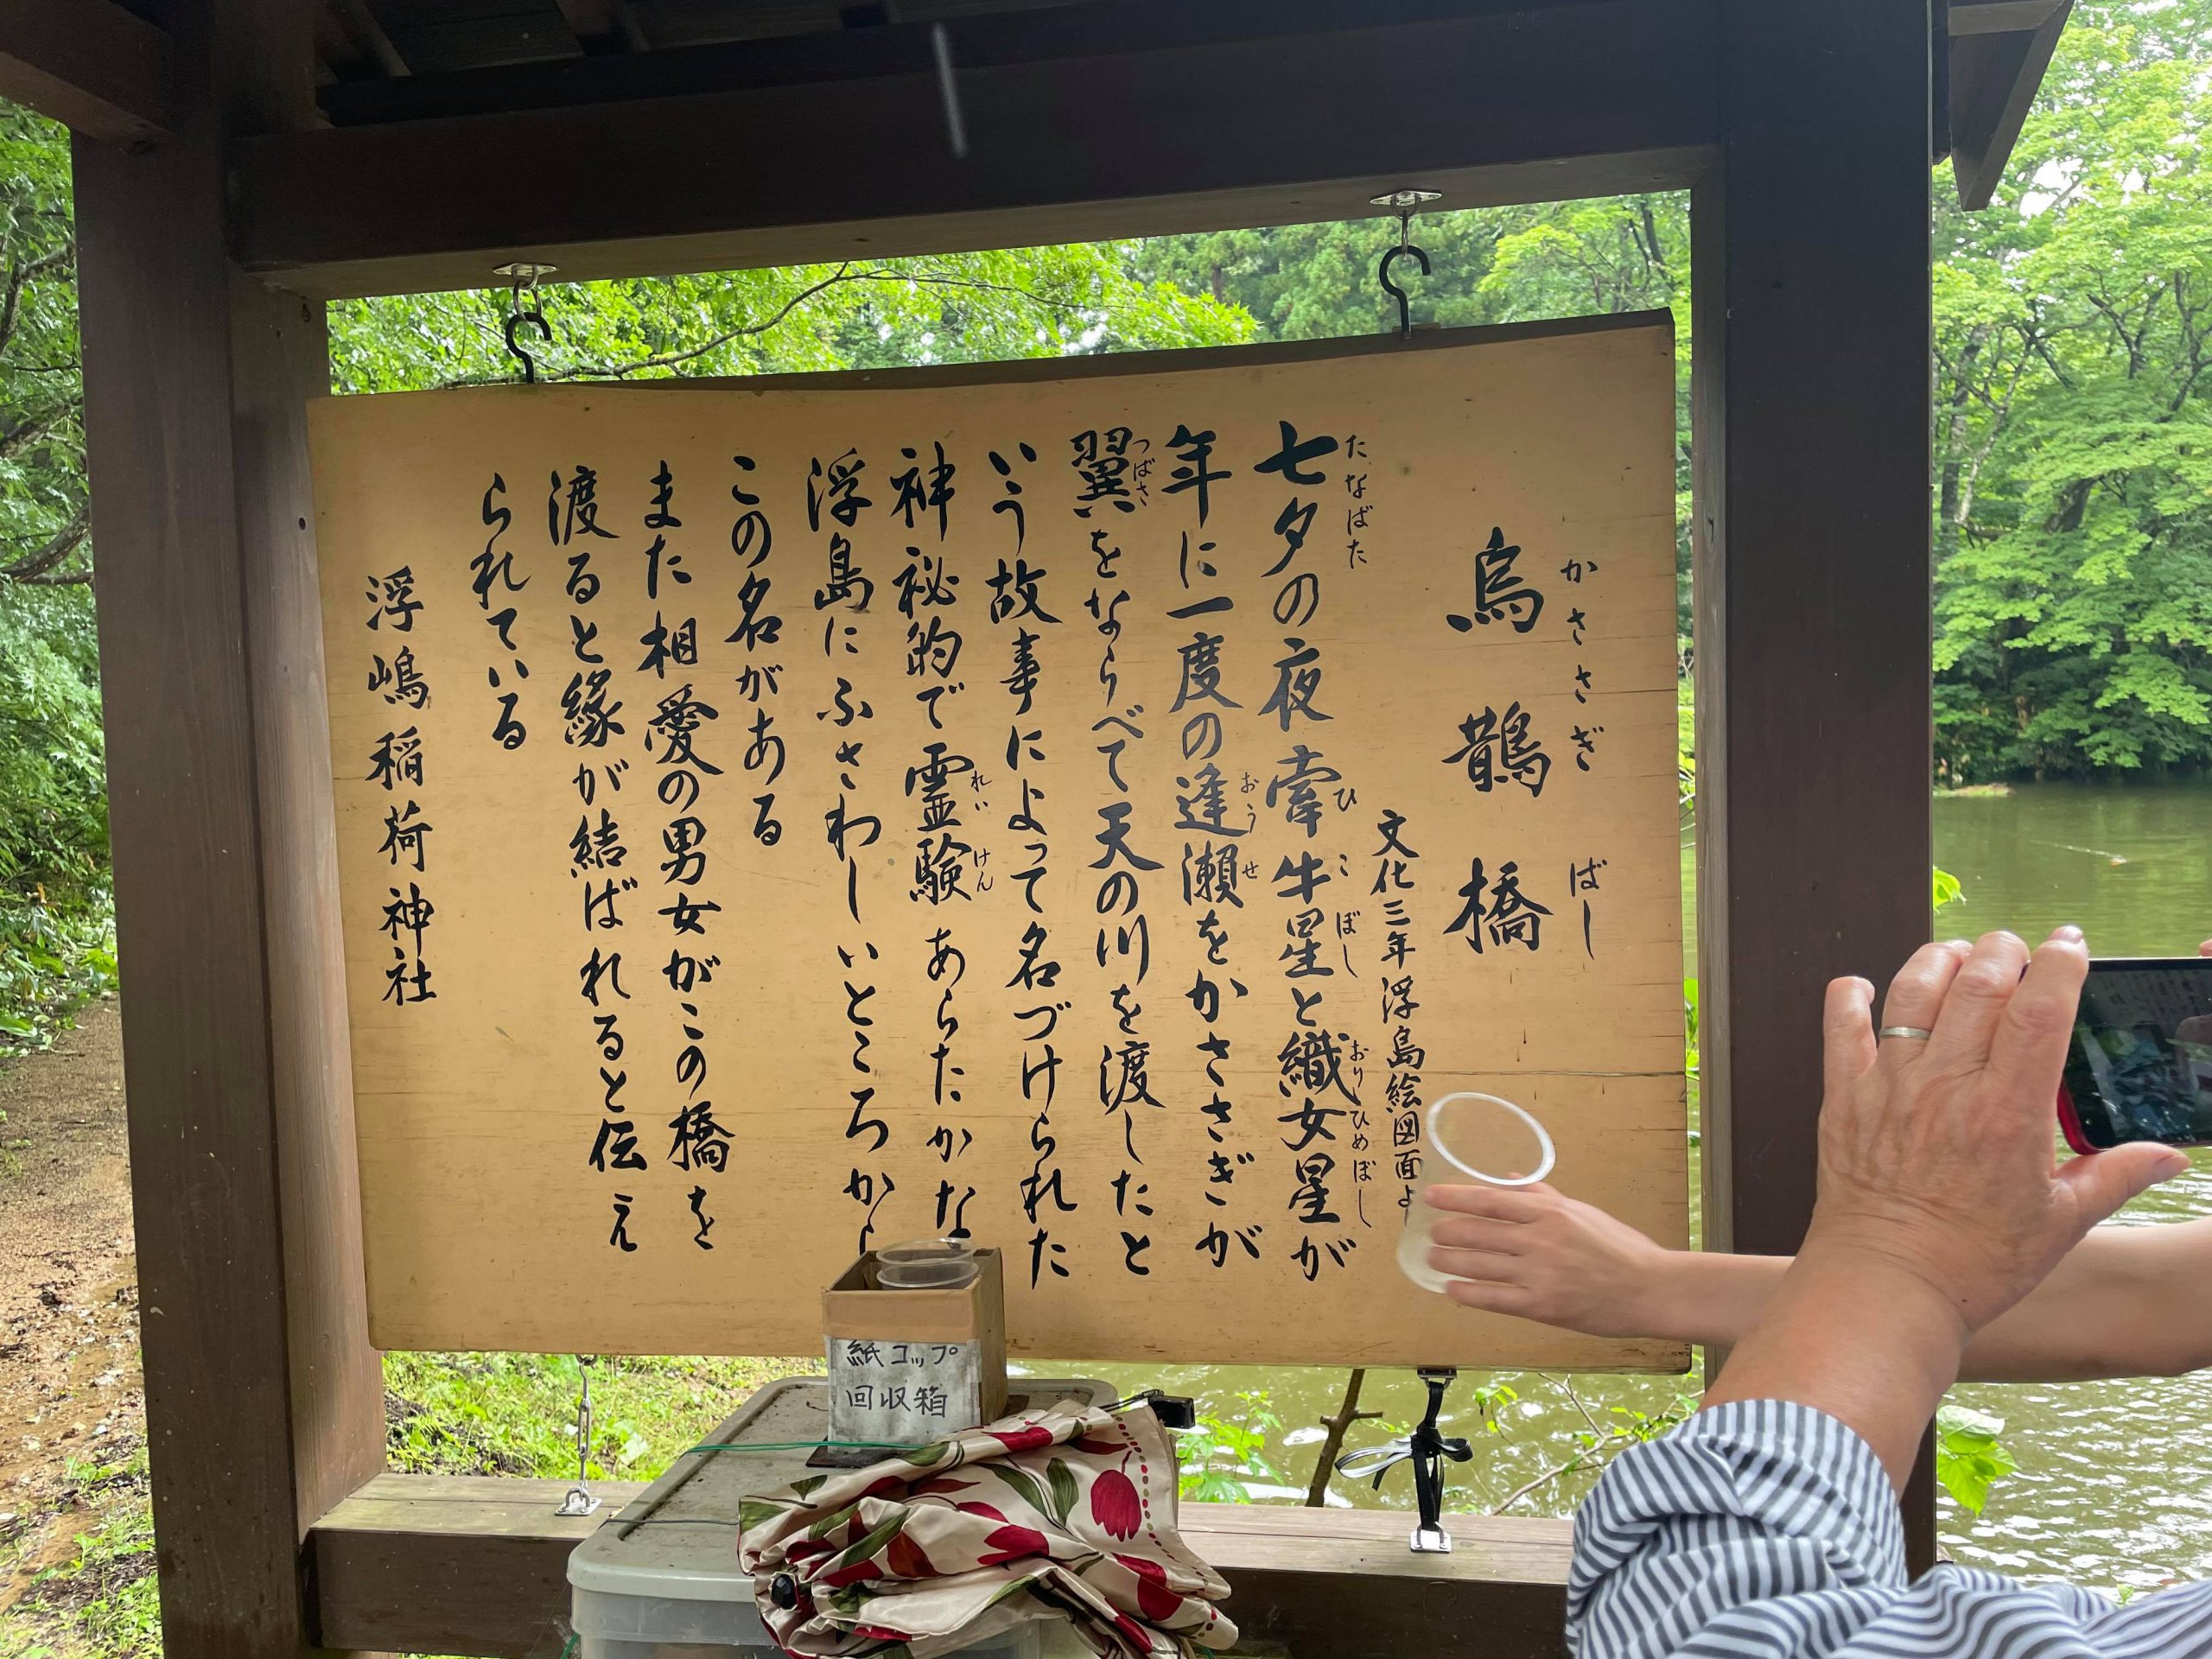 烏鵲橋
かささぎばし
文化三年浮島絵図面よ
七夕の夜牽牛星と織女星が
たなばた
ひこぼし
おりひめぼし
年に一度の逢瀬をかささぎが
おうせ
翼をならべて天の川を渡したと
つばさ
いう故事によって名づけられた
神秘的で霊験あらたかな
れいけん
浮島にふさわしいところから
この名がある
また相愛の男女がこの橋を
渡ると縁が結ばれると伝え
られている
浮嶋稲荷神社
紙コップ
回収箱